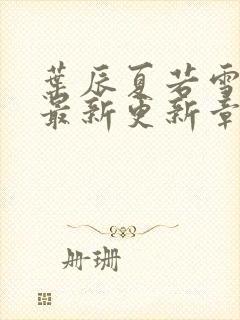 葉辰夏若雪
最新更新章
册珊